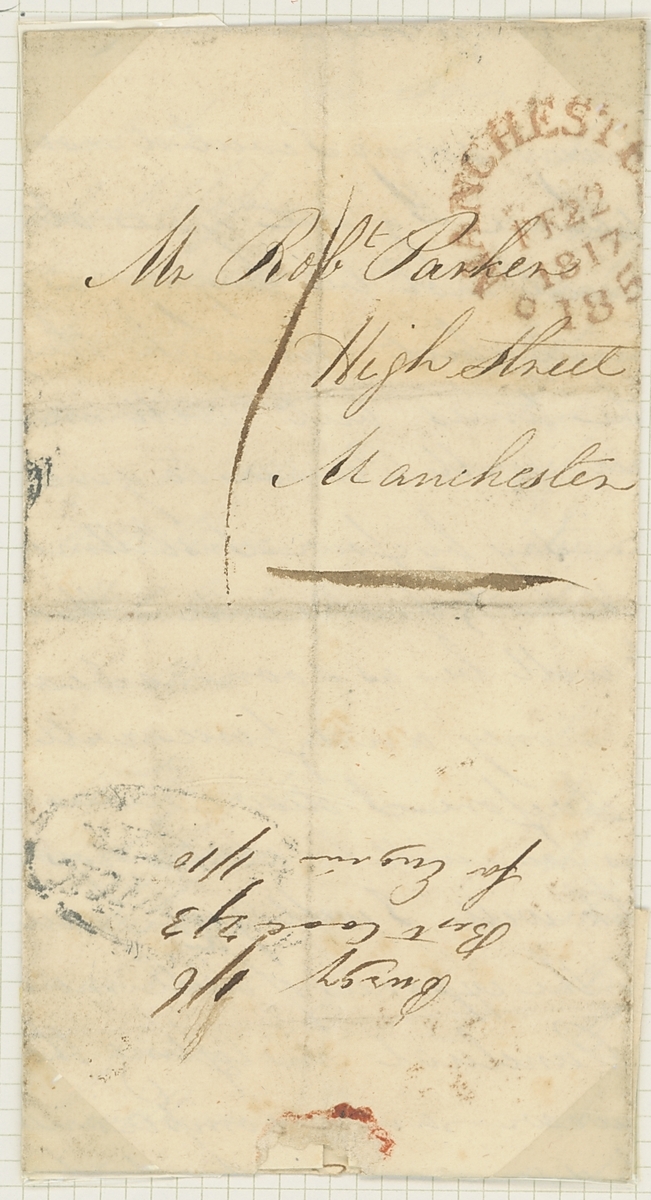 MANCHESTE
22
1817
185
Mr Robt Parker
High Street
Manchester
1/6
Best Coal 2/3
for Engin 1/10